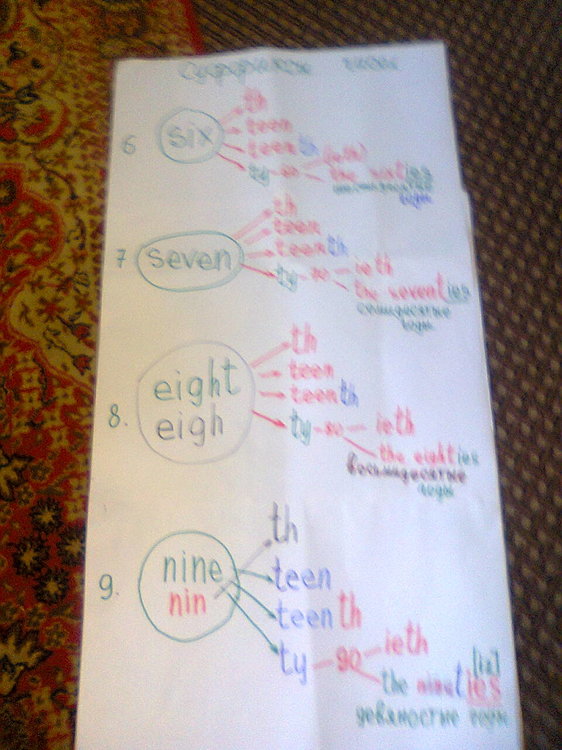 th
6 six teen
teenth (ieth)
ty - 60 - the sixties
годы
th
teen
7 seven teenth
ty - 70 - ieth
the seventies
семидесятые
годы
th
8. eight teen
eigh teenth
ty - 80 - ieth
the eighties
восьмидесятые
годы
th
9. nine teen
nin teenth
ty - 90 - ieth
the nineties [iz]
девяностые годы